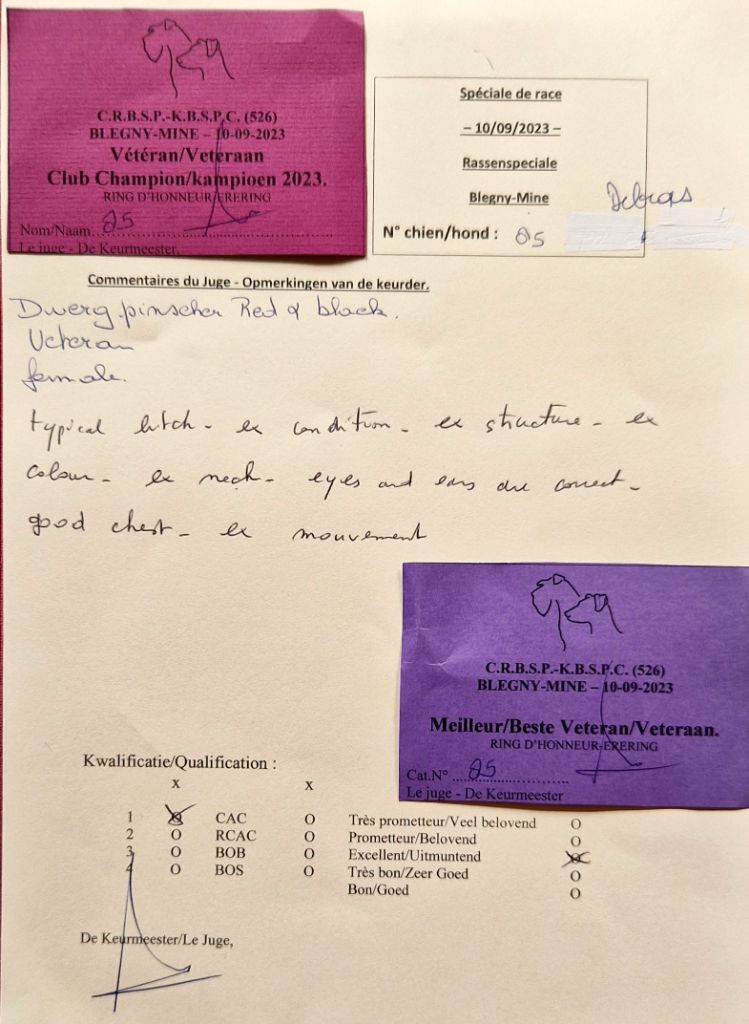 C.R.B.S.P.-K.B.S.P.C. (526)
BLEGNY-MINE – 10-09-2023
Vétéran/Veteraan
Club Champion/kampioen 2023.
RING D'HONNEUR/ERERING
Nom/Naam 25
Le juge - De Keurmeester.
Spéciale de race
– 10/09/2023 –
Rassenspeciale
Blegny-Mine
N° chien/hond : 25
Commentaires du Juge - Opmerkingen van de keurder.
Dwergpinscher Red & black.
Veteran
female.
typical bitch - ex condition - ex structure - ex
colour - ex neck - eyes and ears are correct -
good chest - ex mouvement
C.R.B.S.P.-K.B.S.P.C. (526)
BLEGNY-MINE – 10-09-2023
Meilleur/Beste Veteran/Veteraan.
RING D'HONNEUR-ERERING
Cat.N° 25
Le juge - De Keurmeester
Kwalificatie/Qualification :
x x
1 CAC O Très prometteur/Veel belovend O
2 O RCAC O Prometteur/Belovend O
3 O BOB O Excellent/Uitmuntend
4 O BOS O Très bon/Zeer Goed O
Bon/Goed O
De Keurmeester/Le Juge,